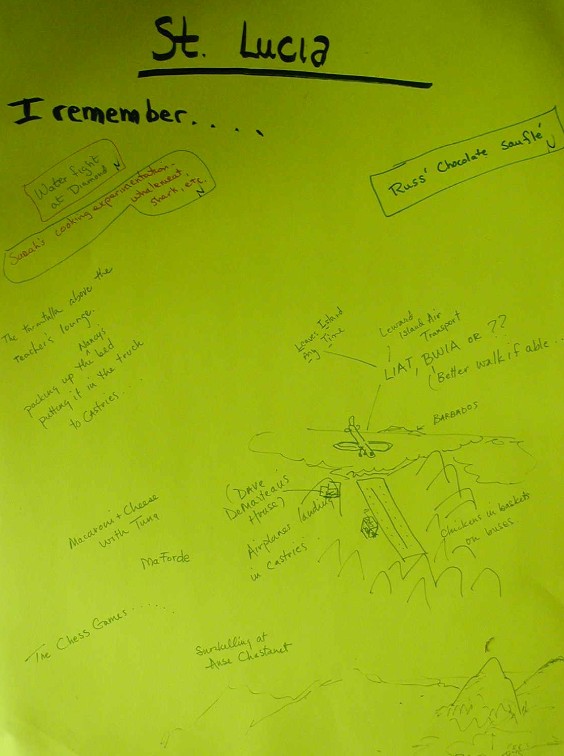 St. Lucia
I remember....
Water fight
at Diamond
N
Sarah's Cooking experimentation -
whelemeat,
shark, etc.
N
Russ' Chocolate souflé
N
The
above the
teacher's lounge.
Nancy's
packing up the bed
putting it in the truck
to Castries...
Leaves Island
Any Time
Leward
Island Air
Transport
LIAT, BWIA or ??
(Better walk if able...
BARBADOS
(Dave
House)
Airplanes landing
in Castries
Chickens in baskets
on buses
Macaroni + Cheese
with Tuna
Ma Forde
The Chess Games......
Snorkelling at
Anse Chastanet